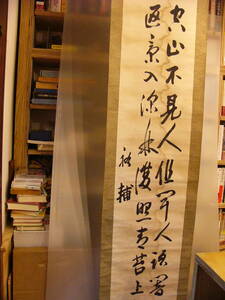 空山不見人但聞人語響
返景入深林復照青苔上
輔